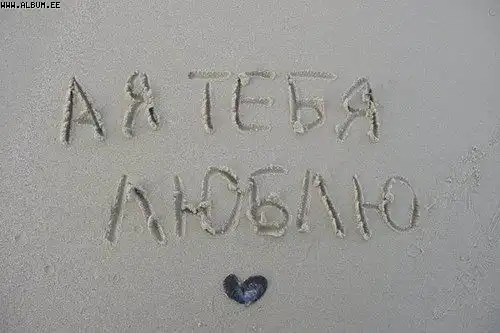 WWW.ALBUM.EE
А Я ТЕБЯ
ЛЮБЛЮ